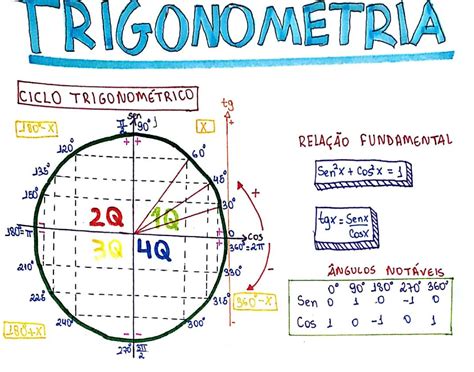 TRIGONOMETRIA
CICLO TRIGONOMÉTRICO
tg
sen
π/2 90°
180°-X
X
120°
60°
135°
45°
150°
30°
2Q 1Q
180°=π
0
cos
360°=2π
3Q 4Q
210°
330°
225°
315°
360°-X
240°
300°
180+X
270° 3π/2
+
-
RELAÇÃO FUNDAMENTAL
Sen²x + Cos²x = 1
tgx = Senx
Cosx
ÂNGULOS NOTÁVEIS
0° 90° 180° 270° 360°
Sen 0 1 0 -1 0
Cos 1 0 -1 0 1